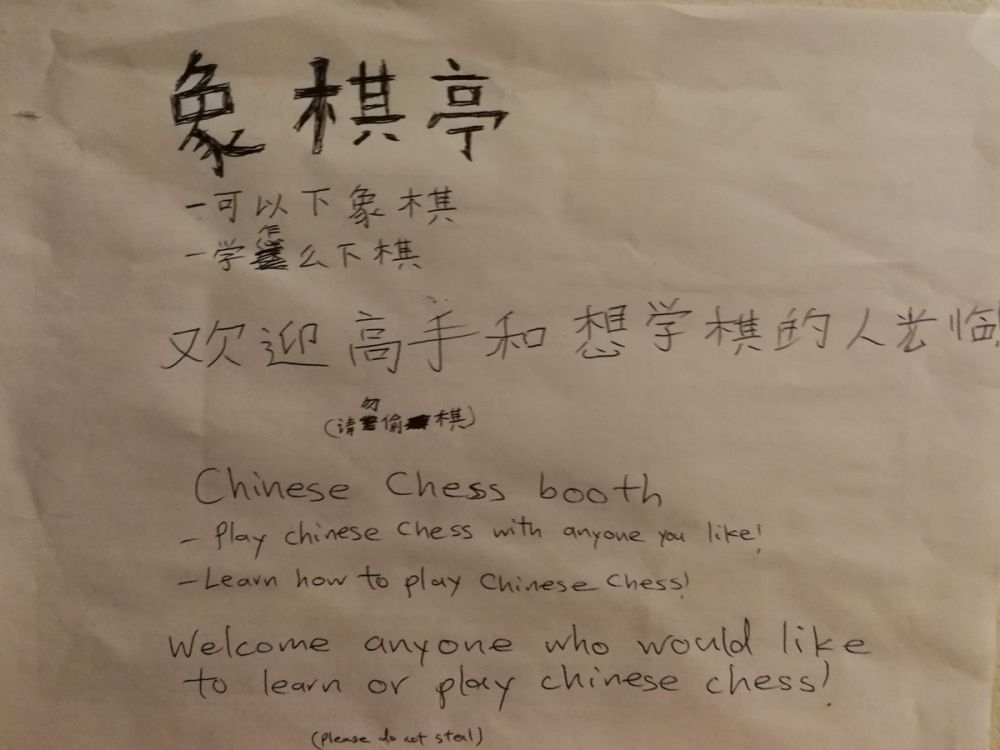 象棋亭
-可以下象棋
-学怎么下棋
欢迎高手和想学棋的人光临!
(请勿偷棋)
Chinese Chess booth
- Play chinese chess with anyone you like!
- Learn how to play Chinese Chess!
Welcome anyone who would like
to learn or play chinese chess!
(please do not steal)